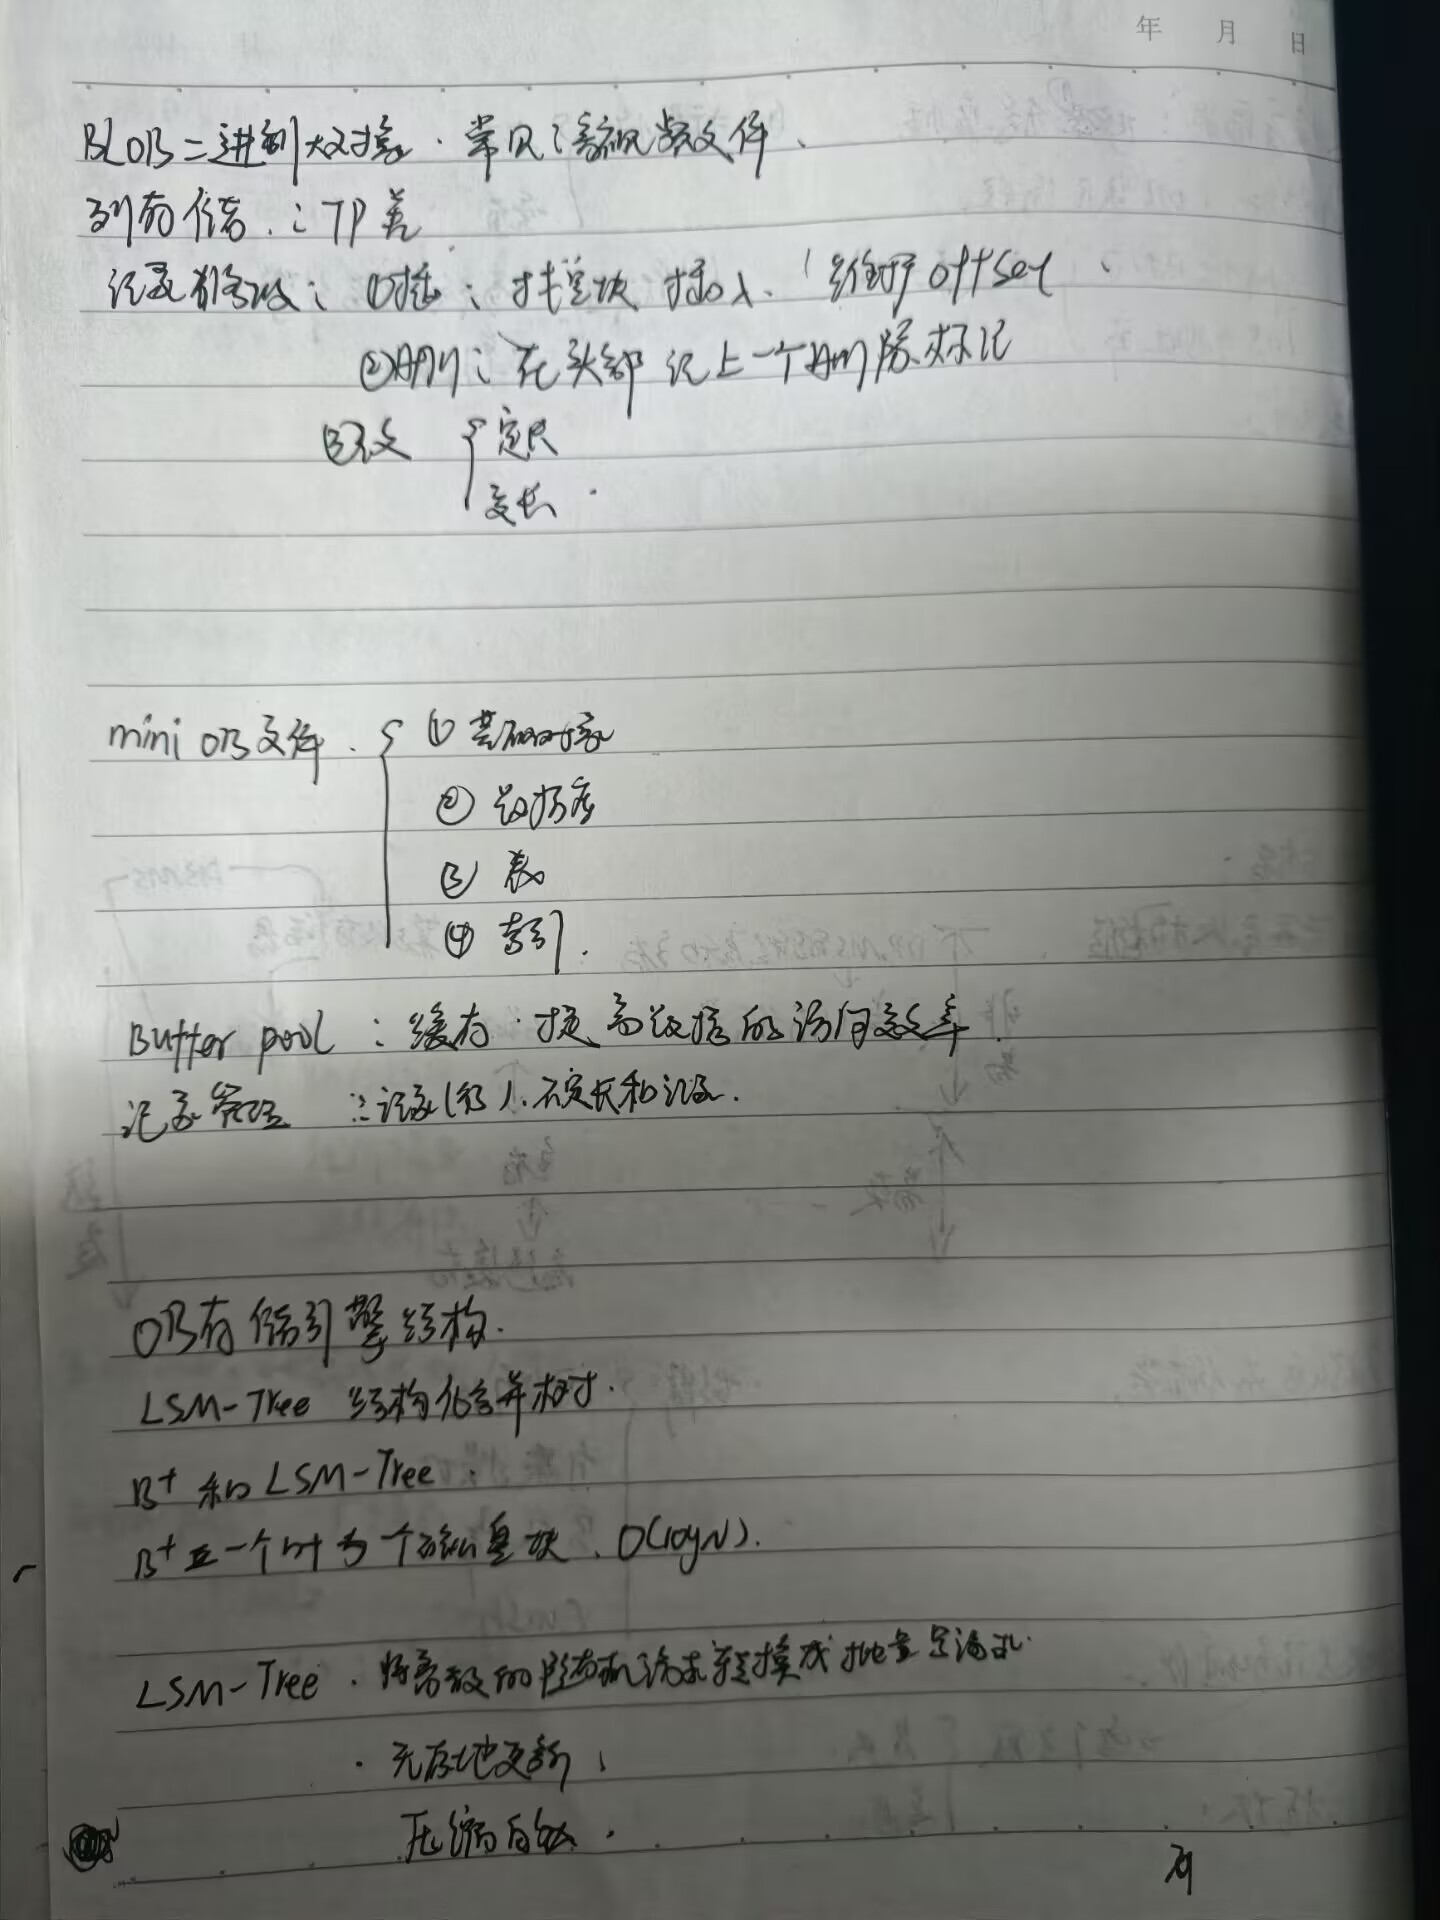 年 月 日
BLOB 二进制大对象. 常见: 音视频文件.
列存储: TP差
记录修改: ①插: 找空块 插入. 维护offset.
②删: 在头部记上一个删除标记
③改 { 定长
变长.
mini OB文件. { ① 共用对象
② 数据库
③ 表
④ 索引.
Buffer pool : 缓存. 提高数据的访问效率.
记录管理 : 记录(行). 不定长和记录.
OB存储引擎结构.
LSM-Tree 结构化合并树.
B+ 和 LSM-Tree.
B+ 一个叶 为一个磁盘块. O(logN).
LSM-Tree. 将离散的随机请求转换成批量写请求.
· 无原地更新;
压缩